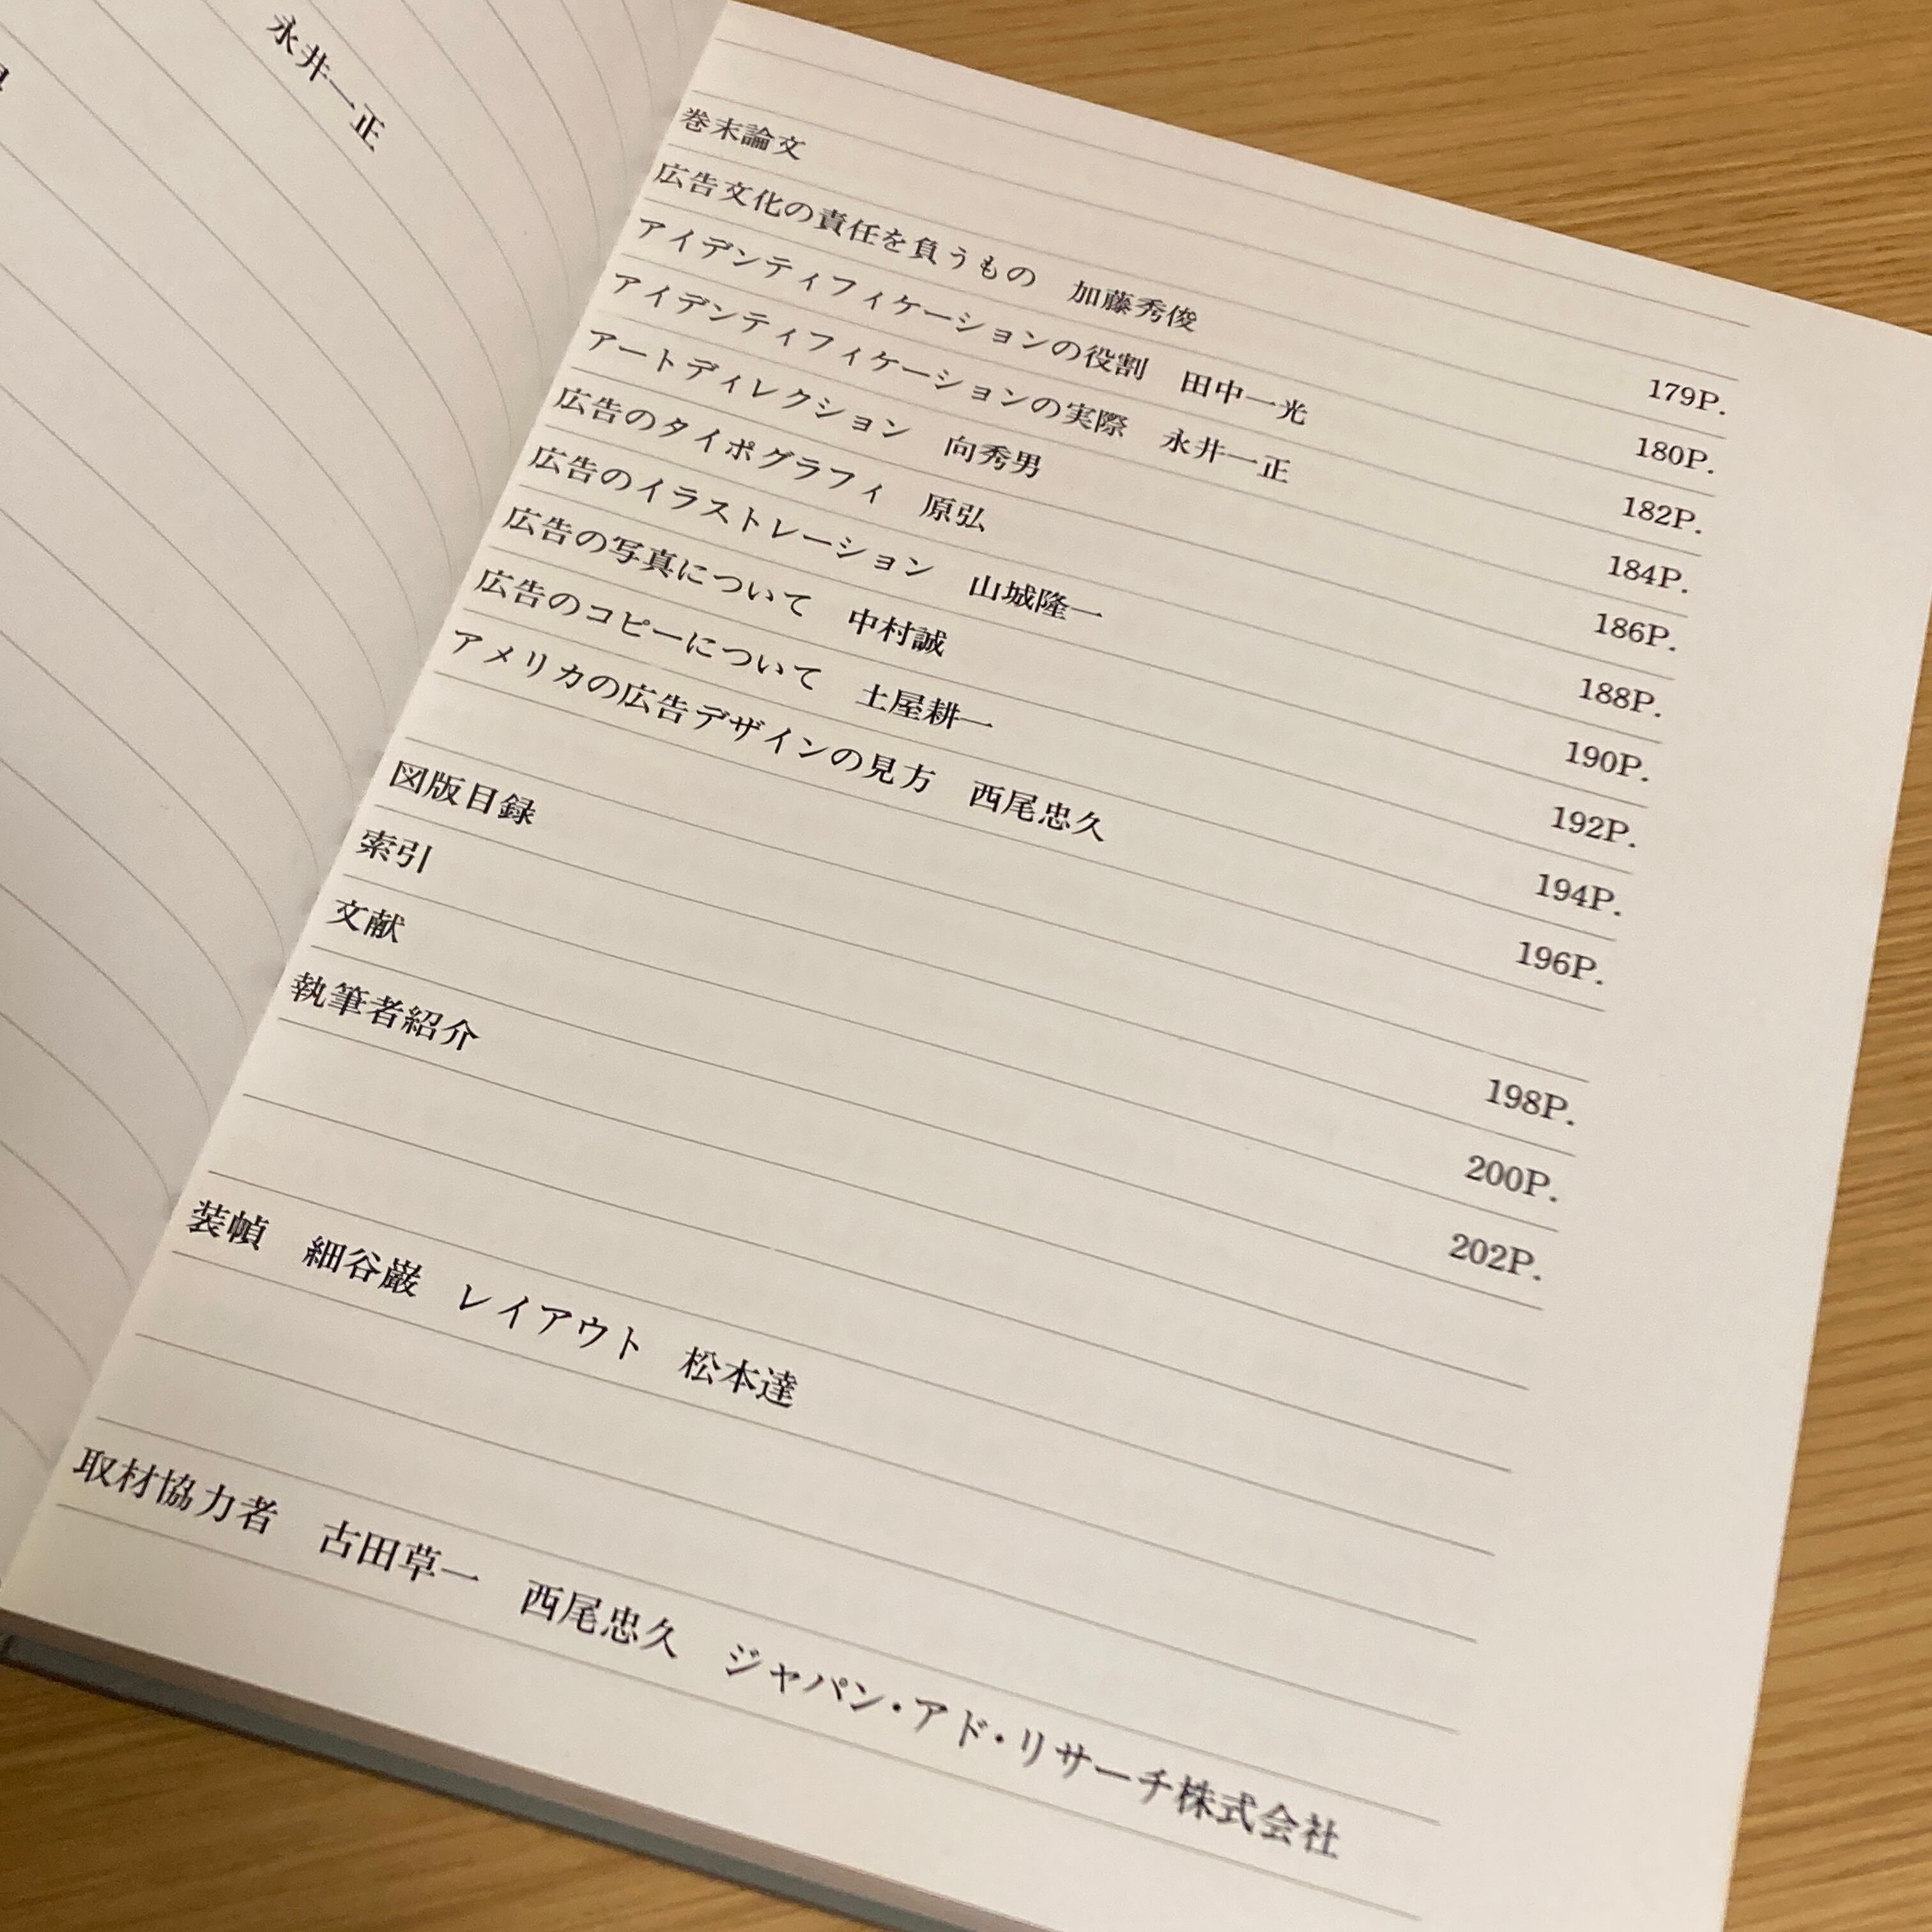 永井一正
巻末論文 179P.
広告文化の責任を負うもの 加藤秀俊 180P.
アイデンティフィケーションの役割 田中一光 182P.
アイデンティフィケーションの実際 永井一正 184P.
アートディレクション 向秀男 186P.
広告のタイポグラフィ 原弘 188P.
広告のイラストレーション 山城隆一 190P.
広告の写真について 中村誠 192P.
広告のコピーについて 土屋耕一 194P.
アメリカの広告デザインの見方 西尾忠久 196P.
図版目録 198P.
索引 200P.
文献 202P.
執筆者紹介
装幀 細谷巖 レイアウト 松本達
取材協力者 古田草一 西尾忠久 ジャパン・アド・リサーチ株式会社